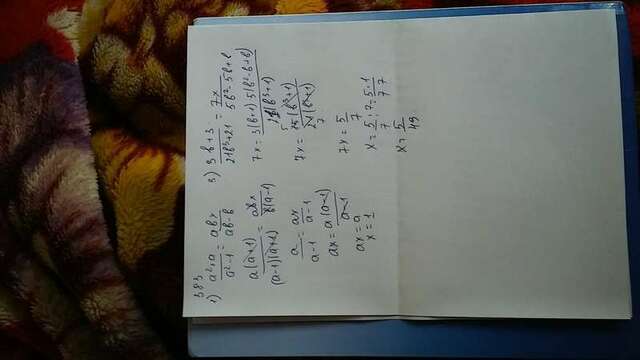 583
1) a²+a/a²-1 = abx/ab-b
a(a+1)/(a-1)(a+1) = abx/b(a-1)
a/a-1 = ax/a-1
ax = a(a-1)/a-1
ax = a
x = 1
3) 3b+3/21b³+21 = 7x/5b²-5b+
7x = 3(b+1) 5(b²-b+b)/21(b³+1)
7x = 15(b³+1)/21(b³+1)
5
7
7x = 5/7
x = 5/7 : 7 = 5·1/7 7
x = 5/49